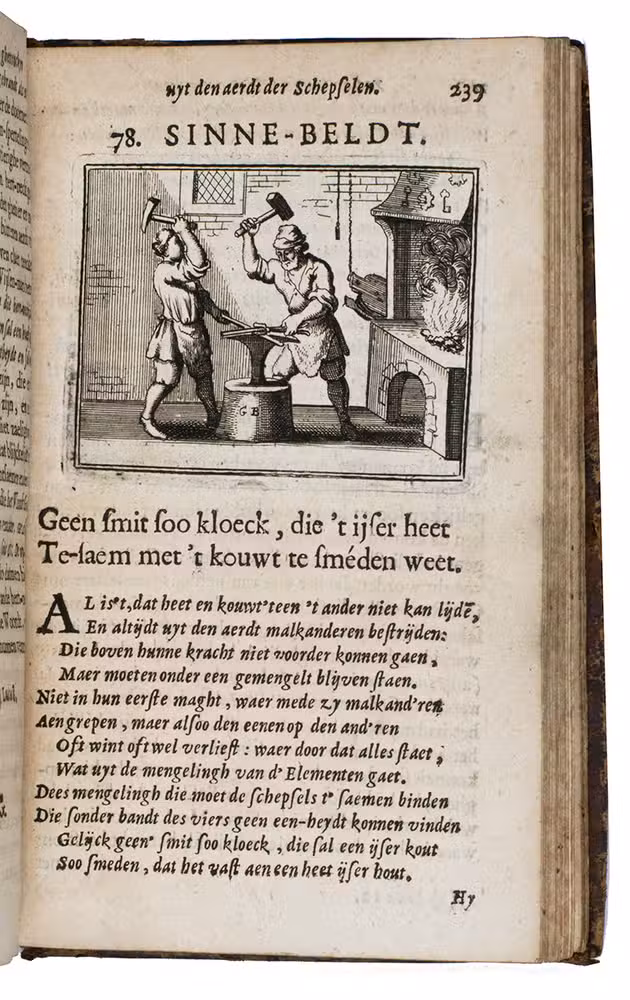 uyt den aerdt der Schepſelen. 239
78. SINNE-BELDT.
G B
Geen ſmit ſoo kloeck, die 't ijſer heet
Te-ſaem met 't kouwt te ſméden weet.
AL is't, dat heet en kouwt' teen 't ander niet kan lijdē,
En altijdt uyt den aerdt malkanderen beſtrijden:
Die boven hunne kracht niet voorder konnen gaen,
Maer moeten onder een gemengelt blijven ſtaen.
Niet in hun eerſte maght, waer mede zy malkand'ren
Aengrepen, maer alſoo den eenen op den and'ren
Oft wint oft wel verlieſt: waer door dat alles ſtaet,
Wat uyt de mengelingh van d' Elementen gaet.
Dees mengelingh die moet de ſchepſels t' ſaemen binden
Die ſonder bandt des viers geen een-heydt konnen vinden
Gelijck geen' ſmit ſoo kloeck, die ſal een ijſer kout
Soo ſmeden, dat het vaſt aen een heet ijſer hout.
Hy